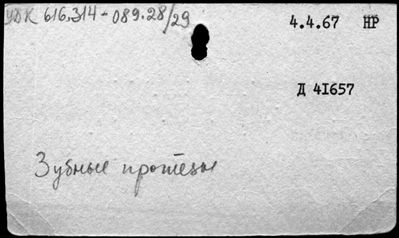 УДК 616.314-089.28/29
4.4.67 НР
Д 41657
Зубные протезы